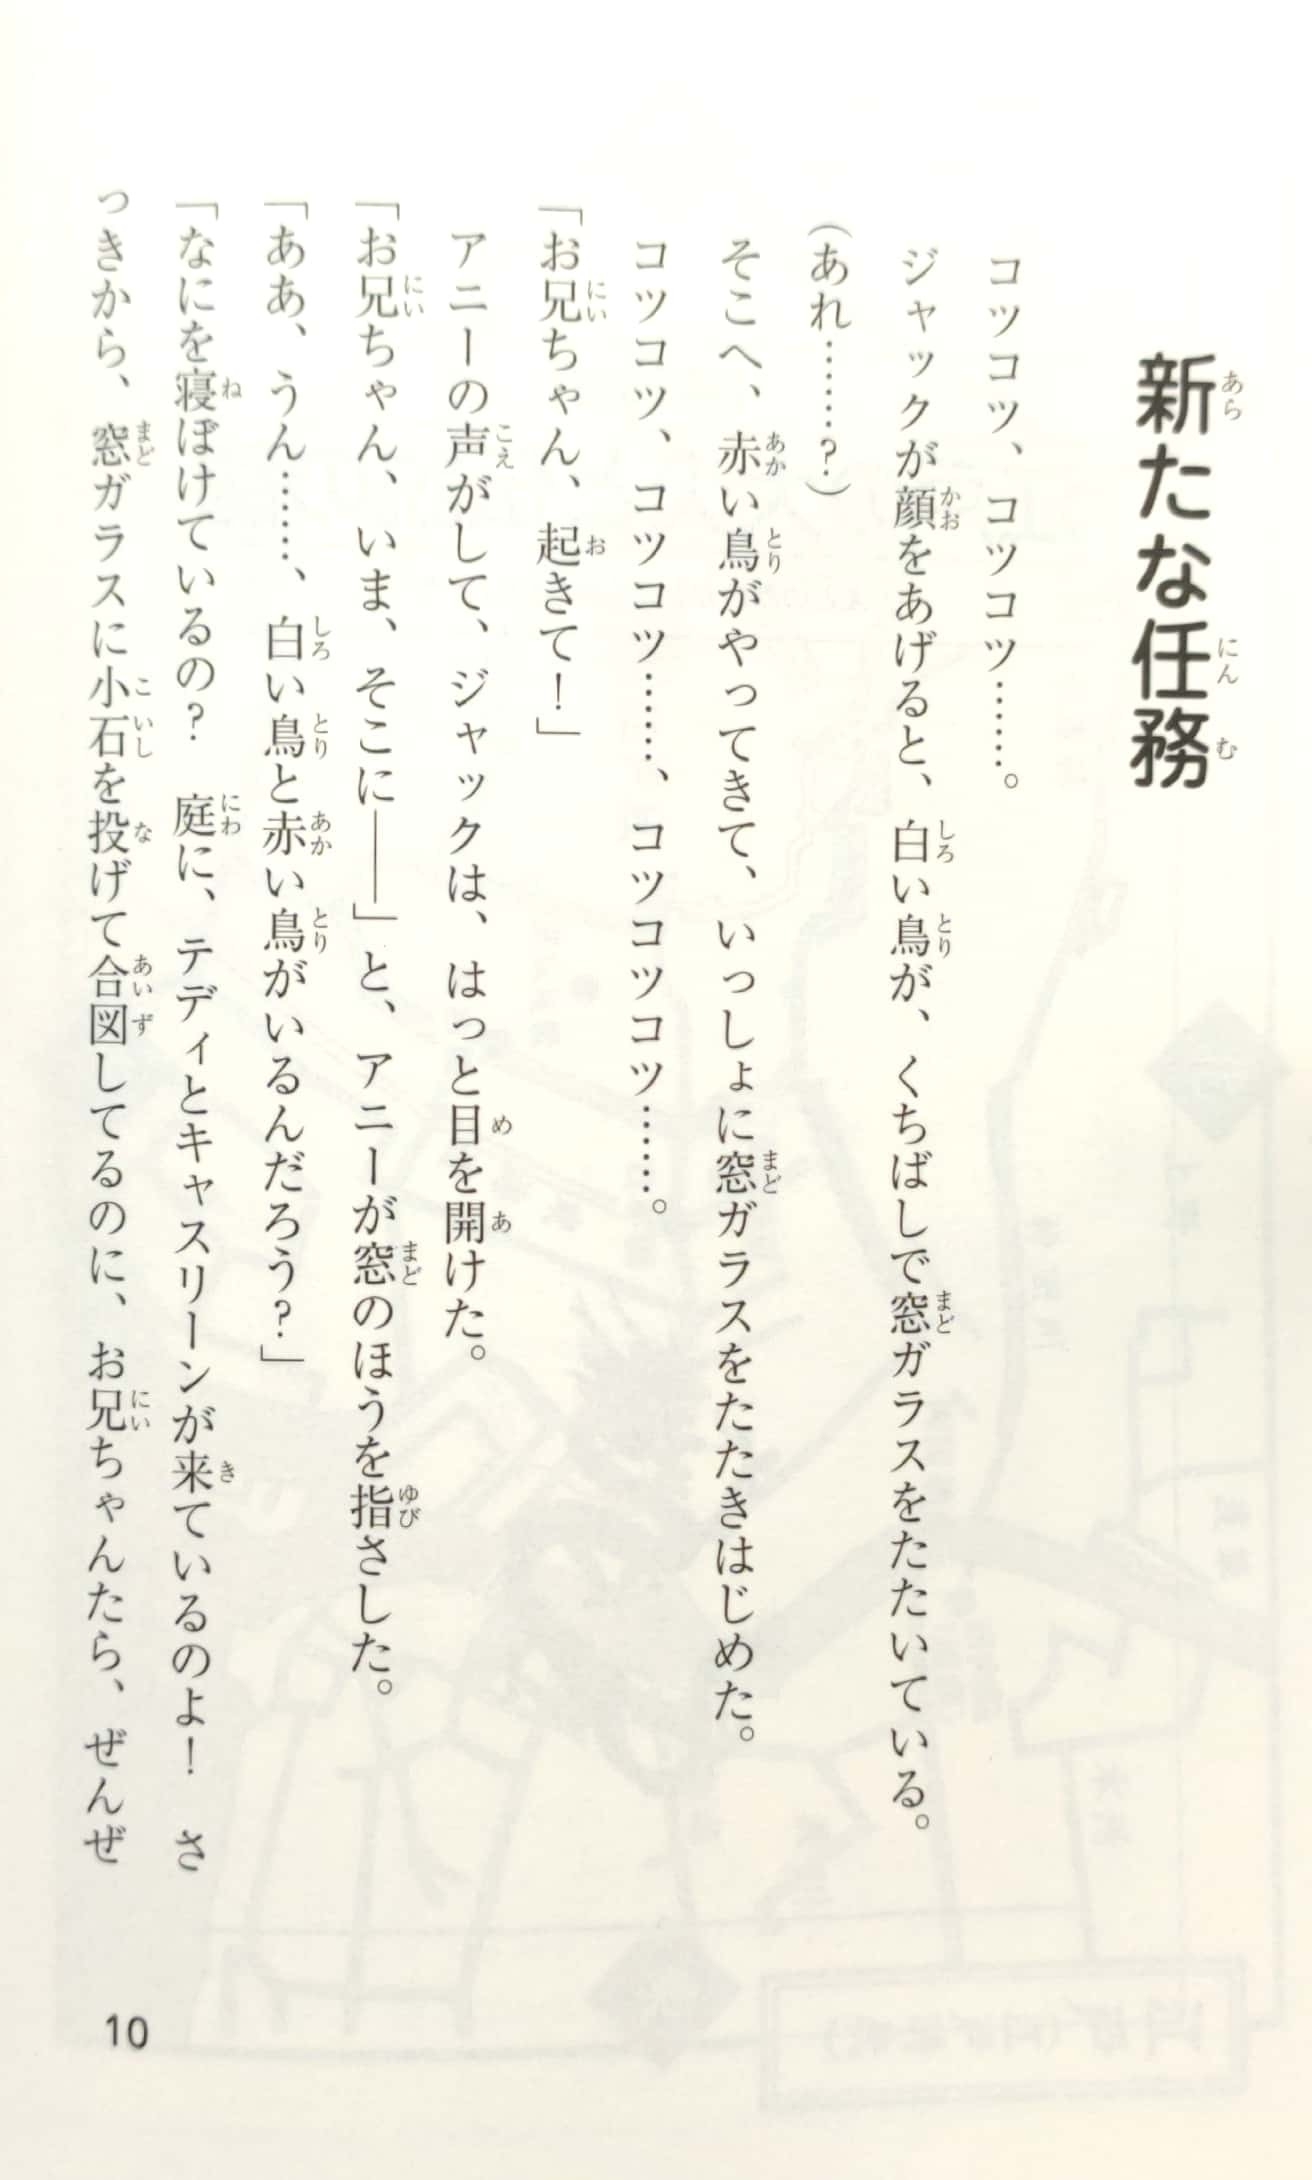 新たな任務
コツコツ、コツコツ……。
ジャックが顔をあげると、白い鳥が、くちばしで窓ガラスをたたいている。
(あれ……?)
そこへ、赤い鳥がやってきて、いっしょに窓ガラスをたたきはじめた。
コツコツ、コツコツ……、コツコツコツ……。
「お兄ちゃん、起きて!」
アニーの声がして、ジャックは、はっと目を開けた。
「お兄ちゃん、いま、そこに――」と、アニーが窓のほうを指さした。
「ああ、うん……、白い鳥と赤い鳥がいるんだろう?」
「なにを寝ぼけているの? 庭に、テディとキャスリーンが来ているのよ! さ
っきから、窓ガラスに小石を投げて合図してるのに、お兄ちゃんたら、ぜんぜ
10